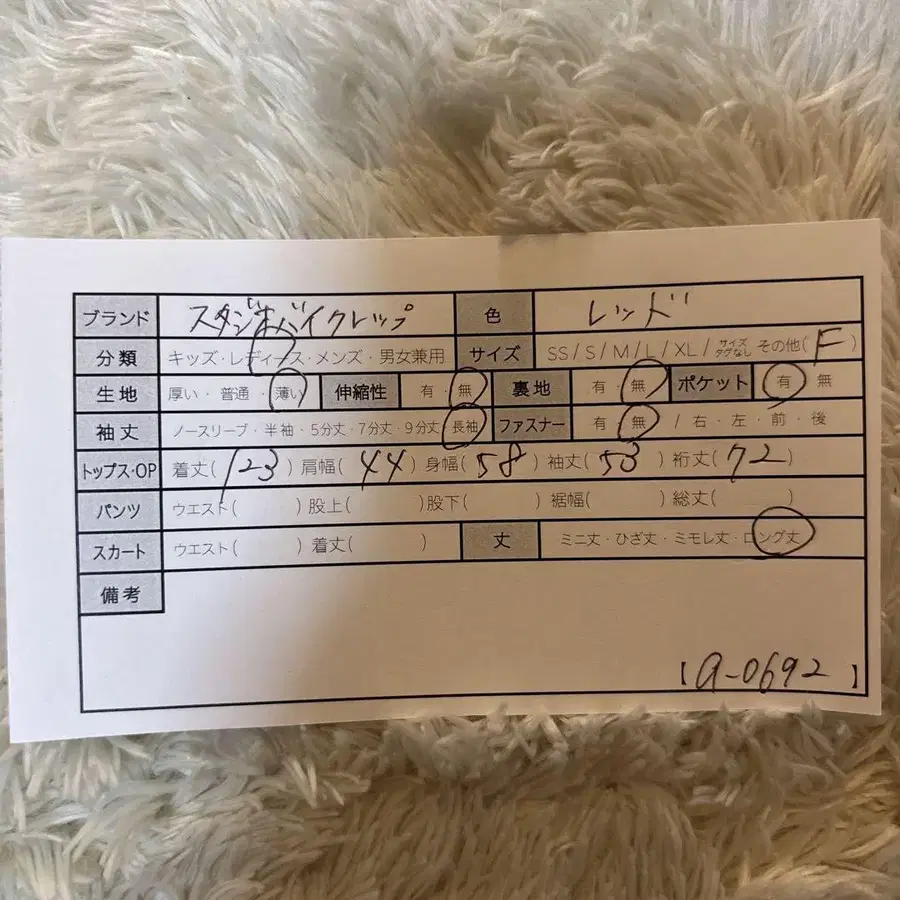 ブランド スタジオバイクレップ 色 レッド
分類 キッズ・レディース・メンズ・男女兼用 サイズ SS/S/M/L/XL/サイズタグなし その他(F)
生地 厚い・普通・薄い 伸縮性 有・無 裏地 有・無 ポケット 有・無
袖丈 ノースリーブ・半袖・5分丈・7分丈・9分丈・長袖 ファスナー 有・無 /右・左・前・後
トップス・OP 着丈(123) 肩幅(44) 身幅(58) 袖丈(53) 裄丈(72)
パンツ ウエスト( ) 股上( ) 股下( ) 裾幅( ) 総丈( )
スカート ウエスト( ) 着丈( ) 丈 ミニ丈・ひざ丈・ミモレ丈・ロング丈
備考
【a-0692】